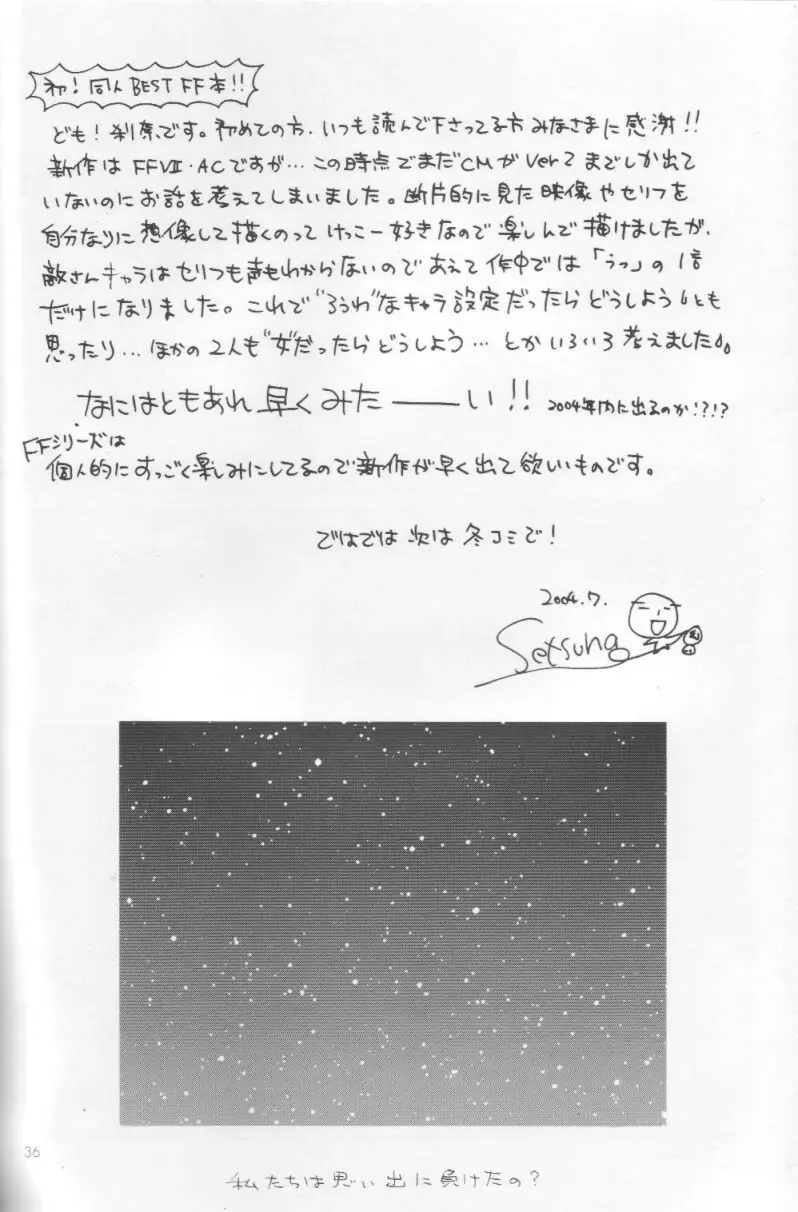 初!同人BEST FF本!!
ども!刹奈です。初めての方、いつも読んで下さってる方 みなさまに感謝!!
新作はFFⅦ・ACですが…この時点でまだCMがVer2までしか出て
いないのにお話を考えてしまいました。断片的に見た映像やセリフを
自分なりに想像して描くのってけっこー好きなので楽しんで描けましたが、
敵さんキャラはセリフも声もわからないのであえて作中では「うっ」の1言
だけになりました。これで"ろうわ"なキャラ設定だったらどうしようとも
思ったり…ほかの2人も"女"だったらどうしよう…とかいろいろ考えました。
なにはともあれ早くみたーい!! 2004年内に出るのか!?!?
FFシリーズは
個人的にすっごく楽しみにしてるので新作が早く出て欲しいものです。
ではでは次は冬コミで!
2004.7.
Setsuna
36
私たちは思い出に負けたの?